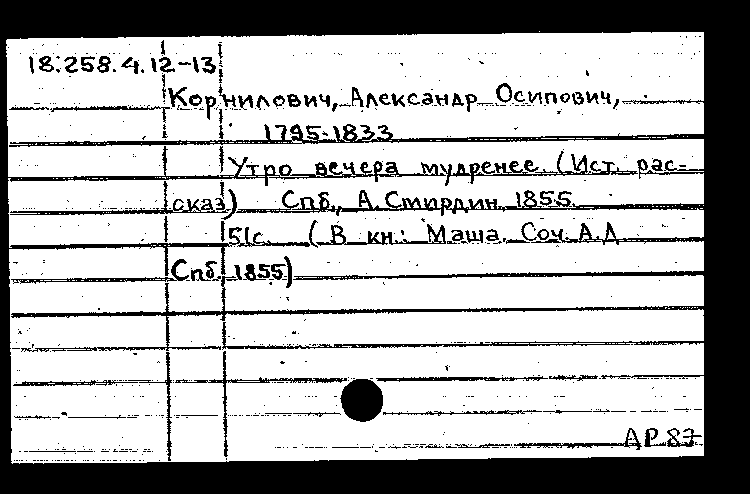 18.258.4.12-13
Корнилович, Александр Осипович,
1795-1833
Утро вечера мудренее. (Ист. рас-
сказ) Спб., А. Смирдин, 1855.
51с. (В кн.: Маша. Соч. А.Д
Спб, 1855)
АР 87